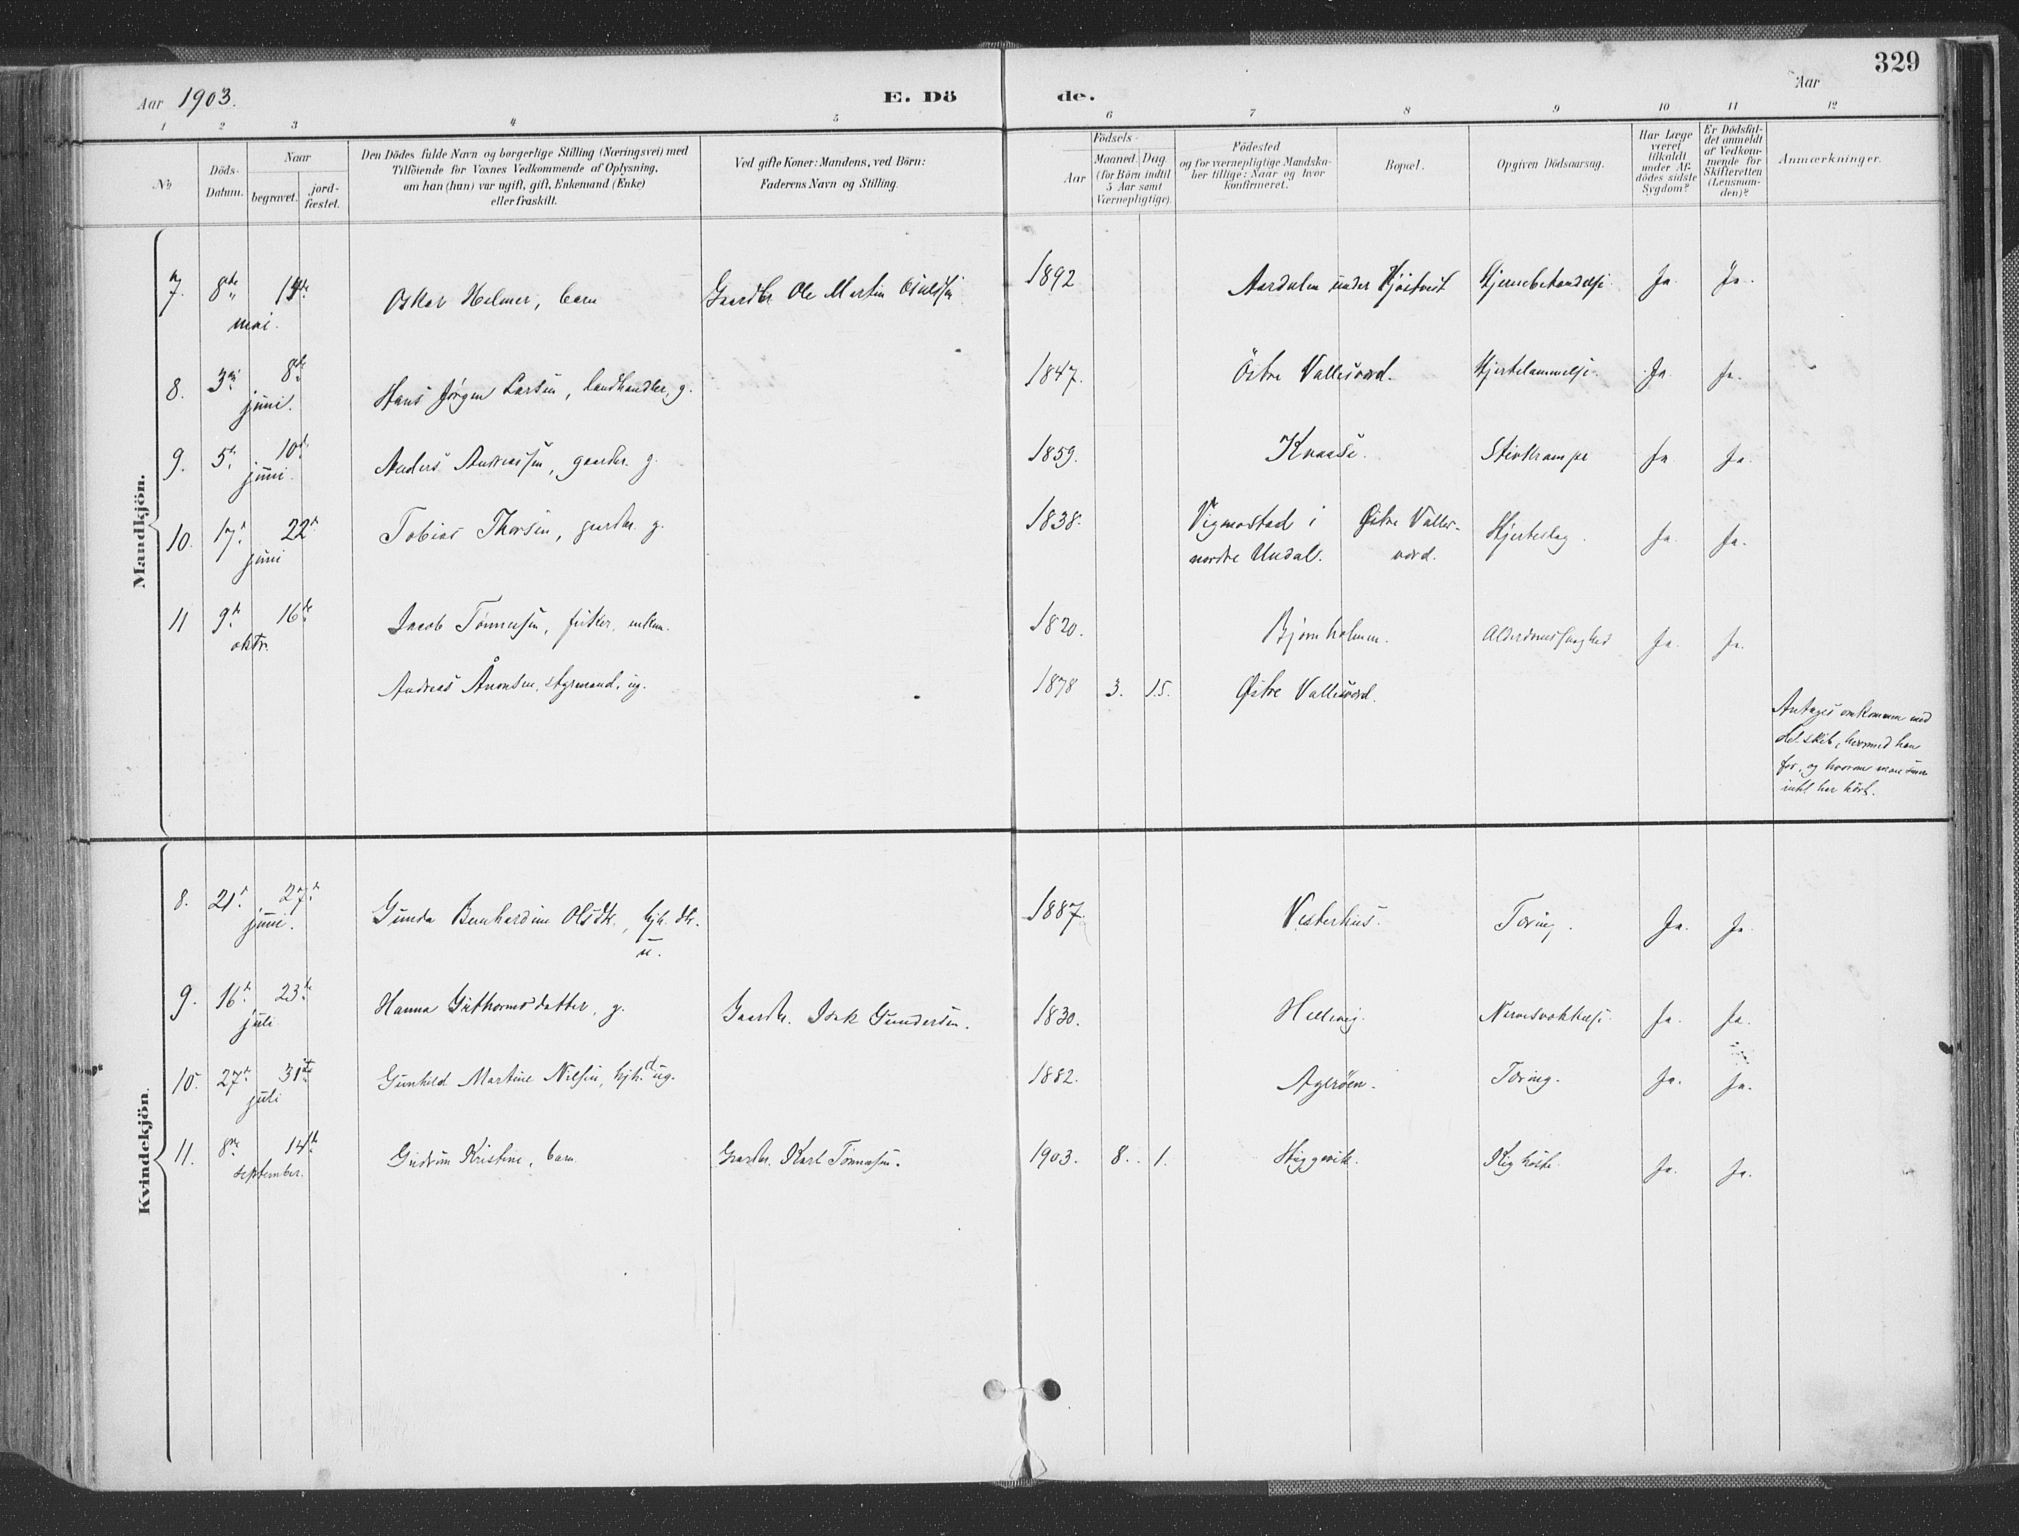 329
Aar 1903.
E. Dö de.
Aar
1 2 3 4 5 6 7 8 9 10 11 12
No
Döds-
Datum.
Naar
begravet.
jord-
fæstet.
Den Dödes fulde Navn og borgerlige Stilling (Næringsvei) med
Tilföiende for Voxnes Vedkommende af Oplysning,
om han (hun) var ugift, gift, Enkemand (Enke)
eller fraskilt.
Ved gifte Koner: Mandens, ved Börn:
Faderens Navn og Stilling.
Födsels-
Aar
Maaned Dag
(for Börn indtil
5 Aar samt
Værnepligtige).
Födested
og for værnepligtige Mandska-
ber tillige: Naar og hvor
konfirmeret.
Bopæl.
Opgiven Dödsaarsag.
Har Læge
været
tilkaldt
under Af-
dödes sidste
Sygdom?
Er Dödsfal-
det anmeldt
af Vedkom-
mende for
Skifteretten
(Lensman-
den)?
Anmærkninger.
Mandkjön.
7. 8de mai. Oskar Helmer, barn Gaardbr Ole Martin 1892 Aardalen under Ja. Ja.
8. 3die 8de juni. Hans Jørgen Larsen, landhandler, g. 1847. Östre Vallesværd. Hjertelammelse. Ja Ja.
9. 5te 10de juni. Anders Andreassen, gaardbr. g. 1859. Knaase. Stivkrampe Ja Ja.
10. 17de 22de juni Tobias Thorsen, gaardbr. g. 1838. Vigmostad i
nordre Undal. Østre Valles-
værd. Hjerteslag. Ja. Ja.
11 9de 16de oktr. Jacob Tønnessen, fisker, enkem. 1820. Bjørnholmen. Alderdomssvaghed Ja. Ja.
Andreas Aanonsen, styrmand, ug. 1878 3. 15. Østre Vallesværd.
Antages omkommen med
det skib, hvormed han
for, og hvorom man siden
intet har hört.
Kvindekjön.
8. 21de 27de juni. Gunda Bernhardine Olsdtr., hjh. dtr.
u. 1887. Vesterhus. Tæring. Ja. Ja.
9. 16de 23de juli Hanna Guthormsdatter, g. Gaardbr. Isak Gundersen. 1830. Hellevig. Ja. Ja.
10. 27de 31te juli Gunhild Martine Nilsen, hjh. d ug. 1882. Agerøen. Tæring. Ja. Ja.
11. 8de 14de september. Gudrun Kristine, barn Gaardbr. Karl Tønnessen. 1903. 8. 1. Skiggevik. Kighoste. Ja. Ja.